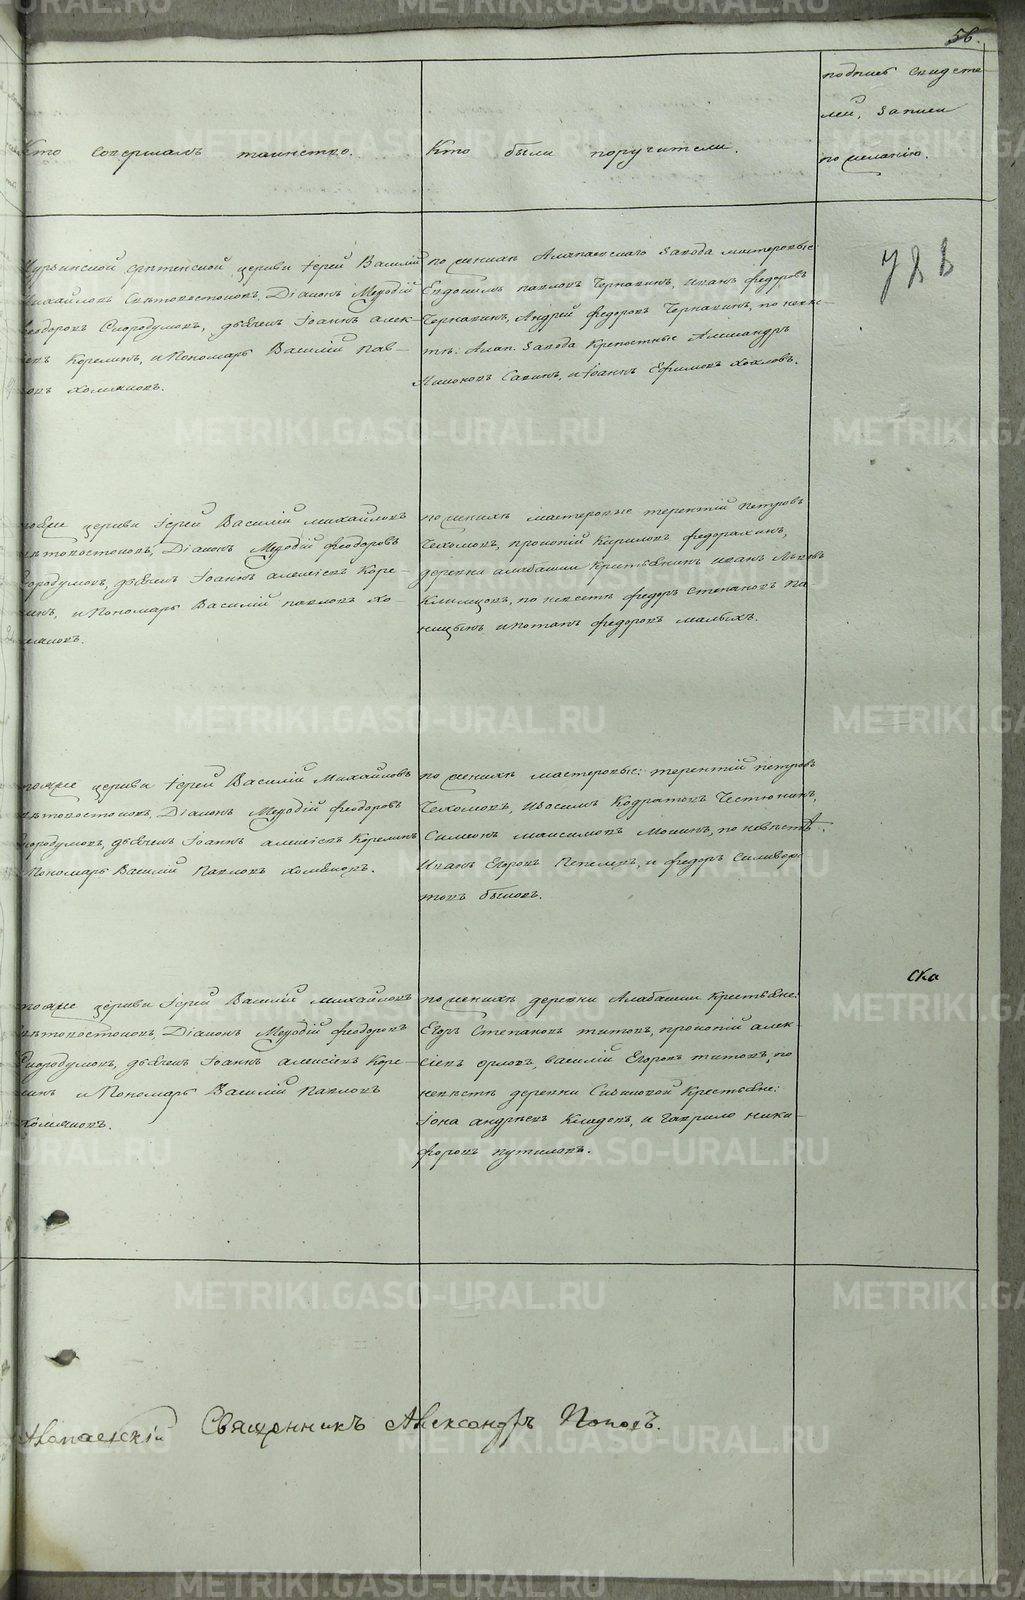 56.
Кто совершалъ таинство.
Кто были поручители.
подпись свидете-
лей, записи
по желанію.
Мурзинской срѣтенской церкви Іерей Василій
Михайловъ Свѣтовостоковъ, Діаконъ Меѳодій
Феодоровъ Смородумовъ, дьячекъ Іоаннъ алек-
Корелинъ, и Пономарь Василій Пав-
ловъ Холмяковъ.
по женихѣ Алапаевскаго Завода мастеровые
Евдокимъ павловъ Чернавинъ, Иванъ федоровъ
Чернавинъ, Андрей федоровъ Чернавинъ, по невѣ-
стѣ: Алап. Завода Крепостные Александръ
Савинъ, и Іоаннъ Ефимовъ Хохловъ.
78
тойже церкви Іерей Василій михайловъ
свѣтовостоковъ, Діаконъ Меѳодій феодоровъ
Смородумовъ, дьячекъ Іоаннъ алексіевъ Коре-
линъ, и Пономарь Василій павловъ Хо-
лмяковъ.
по женихѣ мастеровые терентій петровъ
Чехомовъ, прокопій Кириловъ федорахинъ,
деревни алабашки Крестьянинъ иванъ Львовъ
Климцовъ, по невестѣ федоръ степановъ Па-
ницынъ и потапъ федоровъ малыхъ.
тояже церкви Іерей Василій Михайловъ
свѣтовостоковъ, Діаконъ Меѳодій феодоровъ
Смородумовъ, дьячекъ Іоаннъ алексіевъ Корелинъ
Пономарь Василій Павловъ Холмяковъ.
по женихѣ мастеровые: терентій петровъ
Чехомовъ, Изосимъ Кодратовъ Честюнинъ,
Симеонъ максимовъ Мокинъ, по невѣстѣ.
Иванъ Егоровъ Пепелевъ, и федоръ Селивер-
товъ быковъ.
ска
тояже церкви Іерей Василій михайловъ
свѣтовостоковъ, Діаконъ Меѳодій феодоровъ
Смородумовъ, дьячекъ Іоаннъ алексіевъ Коре-
линъ и Пономарь Василій Павловъ
Холмяковъ.
по женихѣ деревни Алабашки Крестьяне:
Егоръ Степановъ титовъ, прокопій алек-
сіевъ орловъ, василій Егоровъ титовъ, по
невѣстѣ деревни Сизиковой Крестьяне:
Іона андреевъ Кладовъ, и гаврило ники-
форовъ путиловъ.
Алапаевскій Священникъ Александръ Поповъ.
METRIKI.GASO-URAL.RU